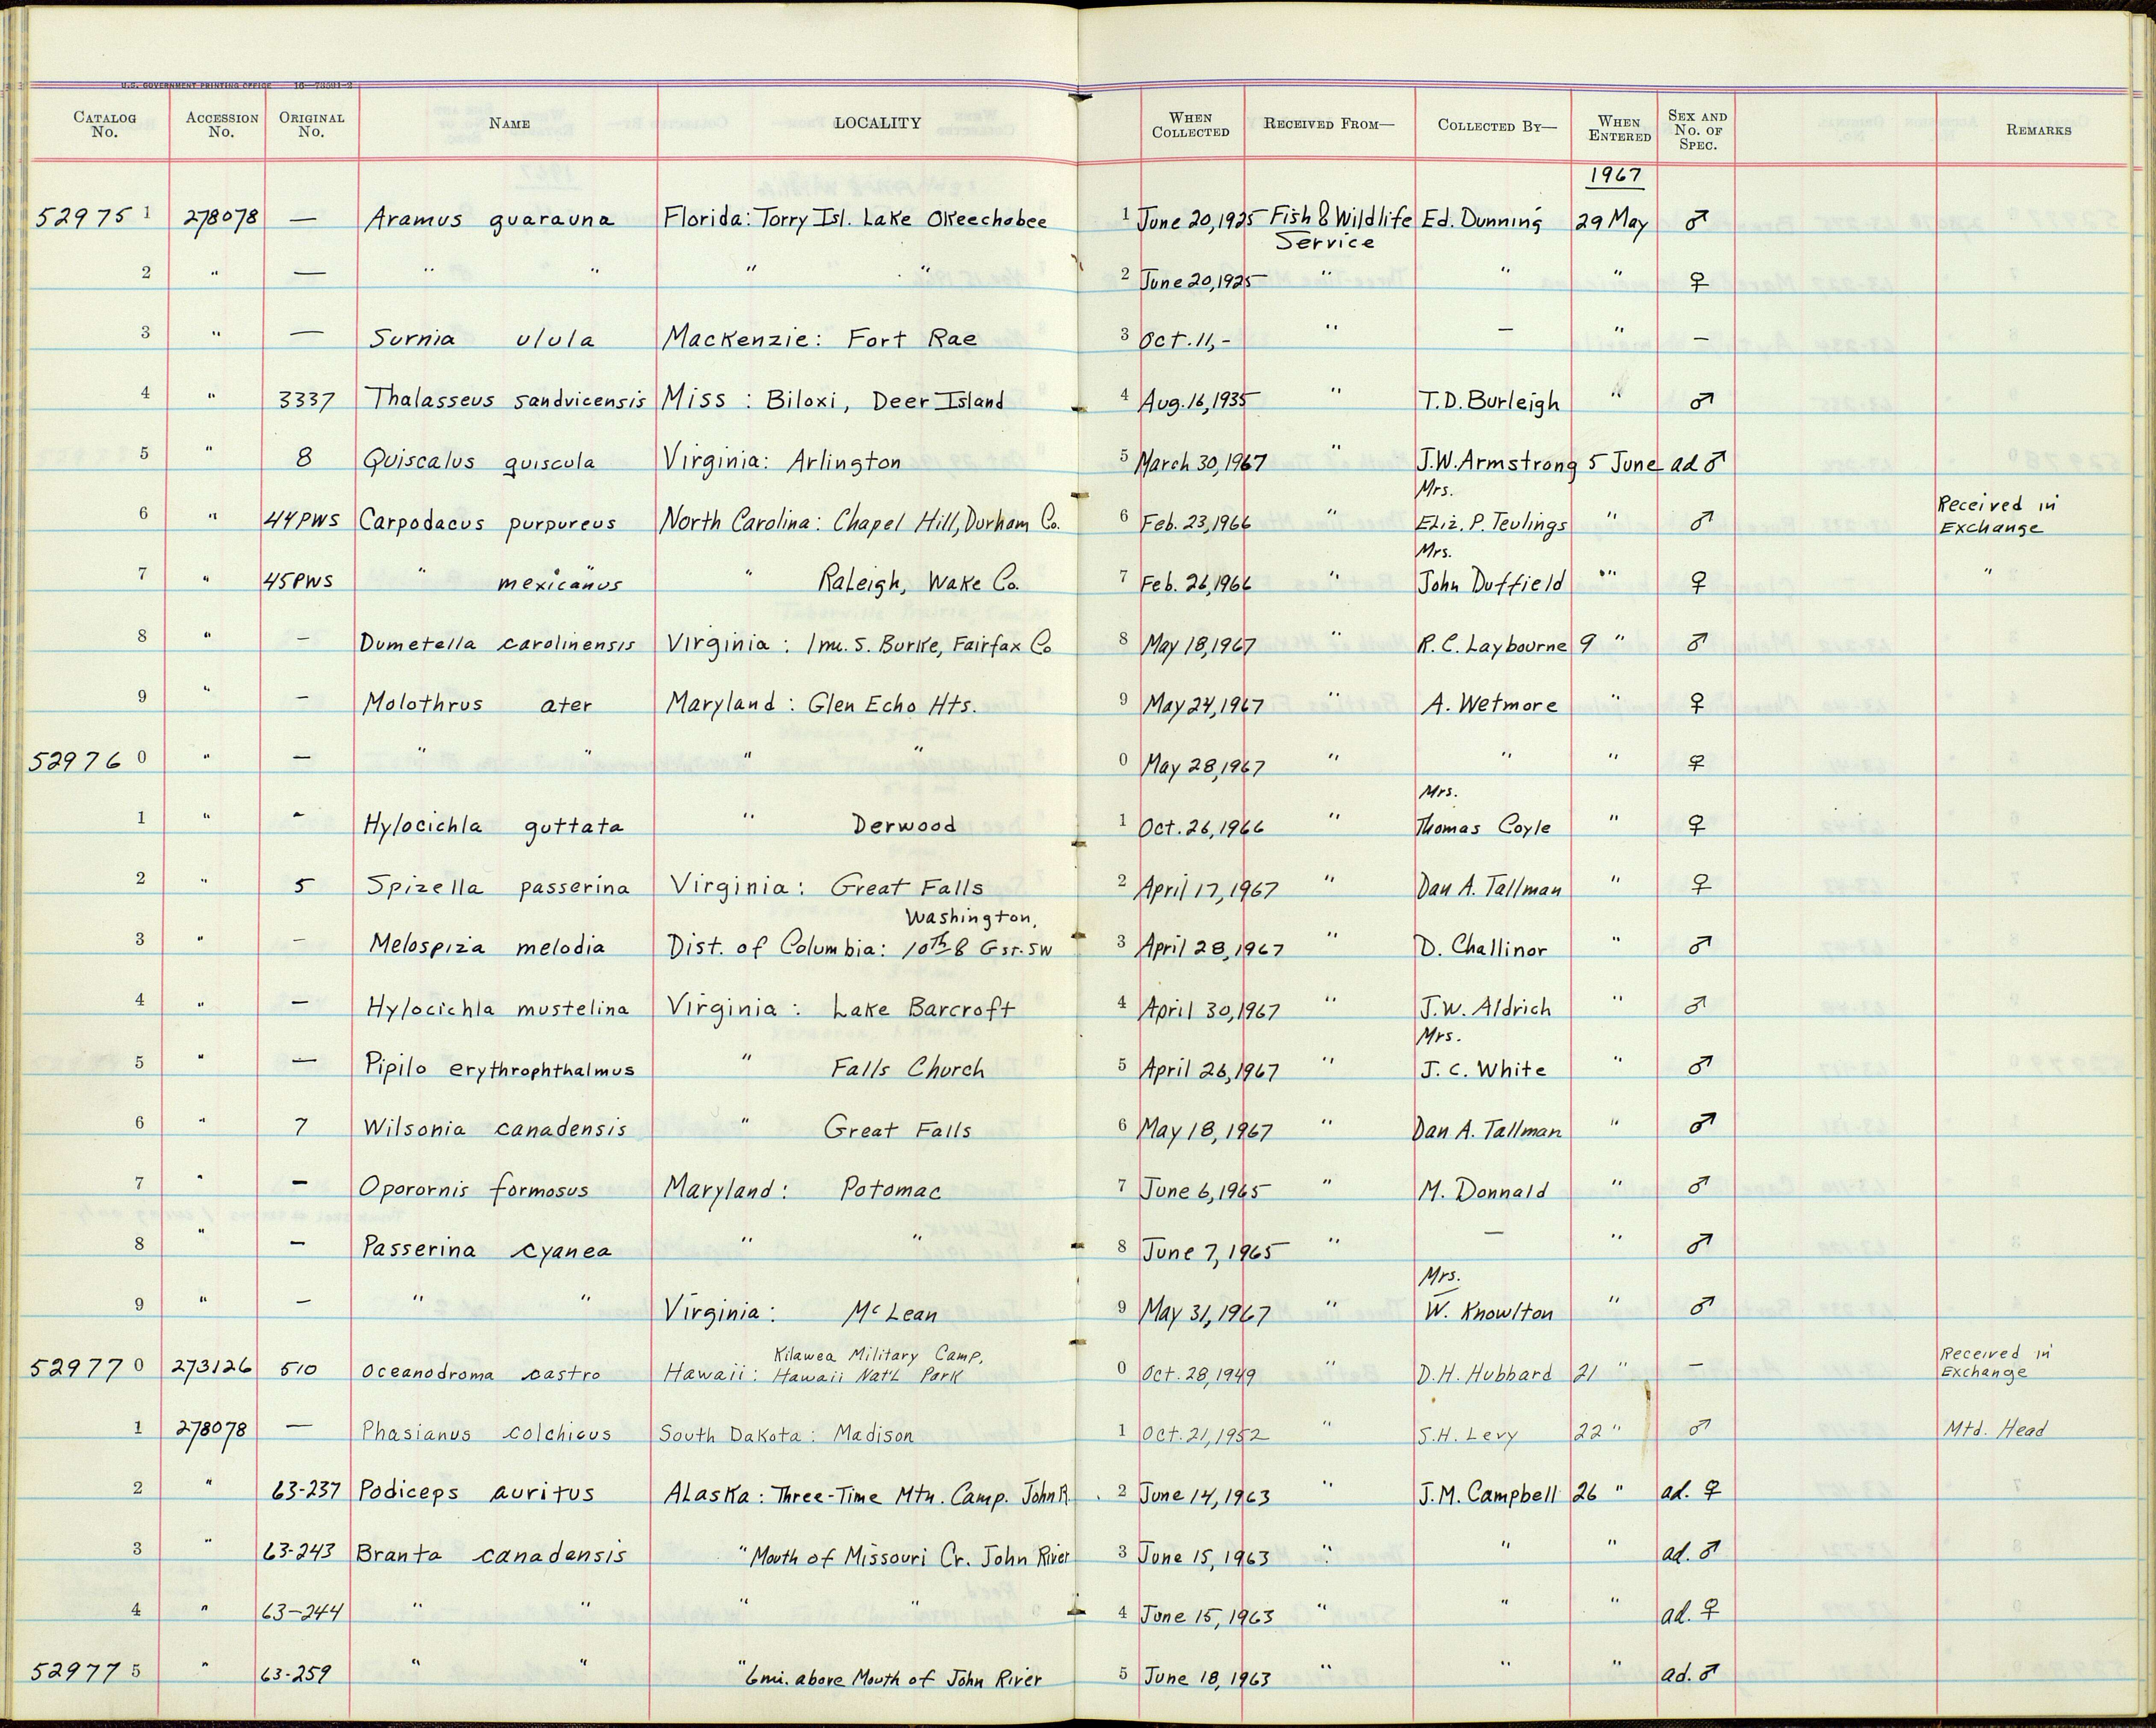 U.S. GOVERNMENT PRINTING OFFICE 16—73591-2
CATALOG No. ACCESSION No. ORIGINAL No. NAME LOCALITY WHEN COLLECTED RECEIVED FROM— COLLECTED BY— WHEN ENTERED SEX AND No. OF SPEC. REMARKS
1967
529751 278078 — Aramus guarauna Florida: Torry Isl. Lake Okeechobee 1 June 20, 1925 Fish & Wildlife Service Ed. Dunning 29 May ♂
2 " — " " " " 2 June 20, 1925 " " " ♀
3 " — Surnia ulula Mackenzie: Fort Rae 3 Oct. 11, - " — " —
4 " 3337 Thalasseus sandvicensis Miss : Biloxi, Deer Island 4 Aug. 16, 1935 " T.D. Burleigh " ♂
5 " 8 Quiscalus quiscula Virginia: Arlington 5 March 30, 1967 " J.W. Armstrong 5 June ad ♂
6 " 44PWS Carpodacus purpureus North Carolina: Chapel Hill, Durham Co. 6 Feb. 23, 1966 " Mrs. Eliz. P. Teulings " ♂ Received in Exchange
7 " 45PWS " mexicanus " Raleigh, Wake Co. 7 Feb. 26, 1966 " Mrs. John Duffield " ♀ "
8 " — Dumetella carolinensis Virginia : 1 mi. S. Burke, Fairfax Co 8 May 18, 1967 " R. C. Laybourne 9 " ♂
9 " — Molothrus ater Maryland : Glen Echo Hts. 9 May 24, 1967 " A. Wetmore " ♀
529760 " — " " " " 0 May 28, 1967 " " " ♀
1 " - Hylocichla guttata " Derwood 1 Oct. 26, 1966 " Mrs. Thomas Coyle " ♀
2 " 5 Spizella passerina Virginia: Great Falls 2 April 17, 1967 " Dan A. Tallman " ♀
3 " — Melospiza melodia Dist. of Columbia: Washington, 10th & G St. SW 3 April 28, 1967 " D. Challinor " ♂
4 " — Hylocichla mustelina Virginia : Lake Barcroft 4 April 30, 1967 " J.W. Aldrich " ♂
5 " — Pipilo erythrophthalmus " Falls Church 5 April 26, 1967 " Mrs. J. C. White " ♂
6 " 7 Wilsonia canadensis " Great Falls 6 May 18, 1967 " Dan A. Tallman " ♂
7 " — Oporornis formosus Maryland: Potomac 7 June 6, 1965 " M. Donnald " ♂
8 " — Passerina cyanea " " 8 June 7, 1965 " — " ♂
9 " — " " Virginia: McLean 9 May 31, 1967 " Mrs. W. Knowlton " ♂
529770 273126 510 Oceanodroma castro Hawaii: Kilawea Military Camp, Hawaii Nat'l Park 0 Oct. 28, 1949 " D.H. Hubbard 21 " — Received in Exchange
1 278078 — Phasianus colchicus South Dakota: Madison 1 Oct. 21, 1952 " S.H. Levy 22 " ♂ Mtd. Head
2 " 63-237 Podiceps auritus Alaska: Three-Time Mtn. Camp. John R. 2 June 14, 1963 " J.M. Campbell 26 " ad. ♀
3 " 63-243 Branta canadensis " Mouth of Missouri Cr. John River 3 June 15, 1963 " " " ad. ♂
4 " 63-244 " " " " 4 June 15, 1963 " " " ad. ♀
529775 " 63-259 " " " 6mi. above Mouth of John River 5 June 18, 1963 " " " ad. ♂